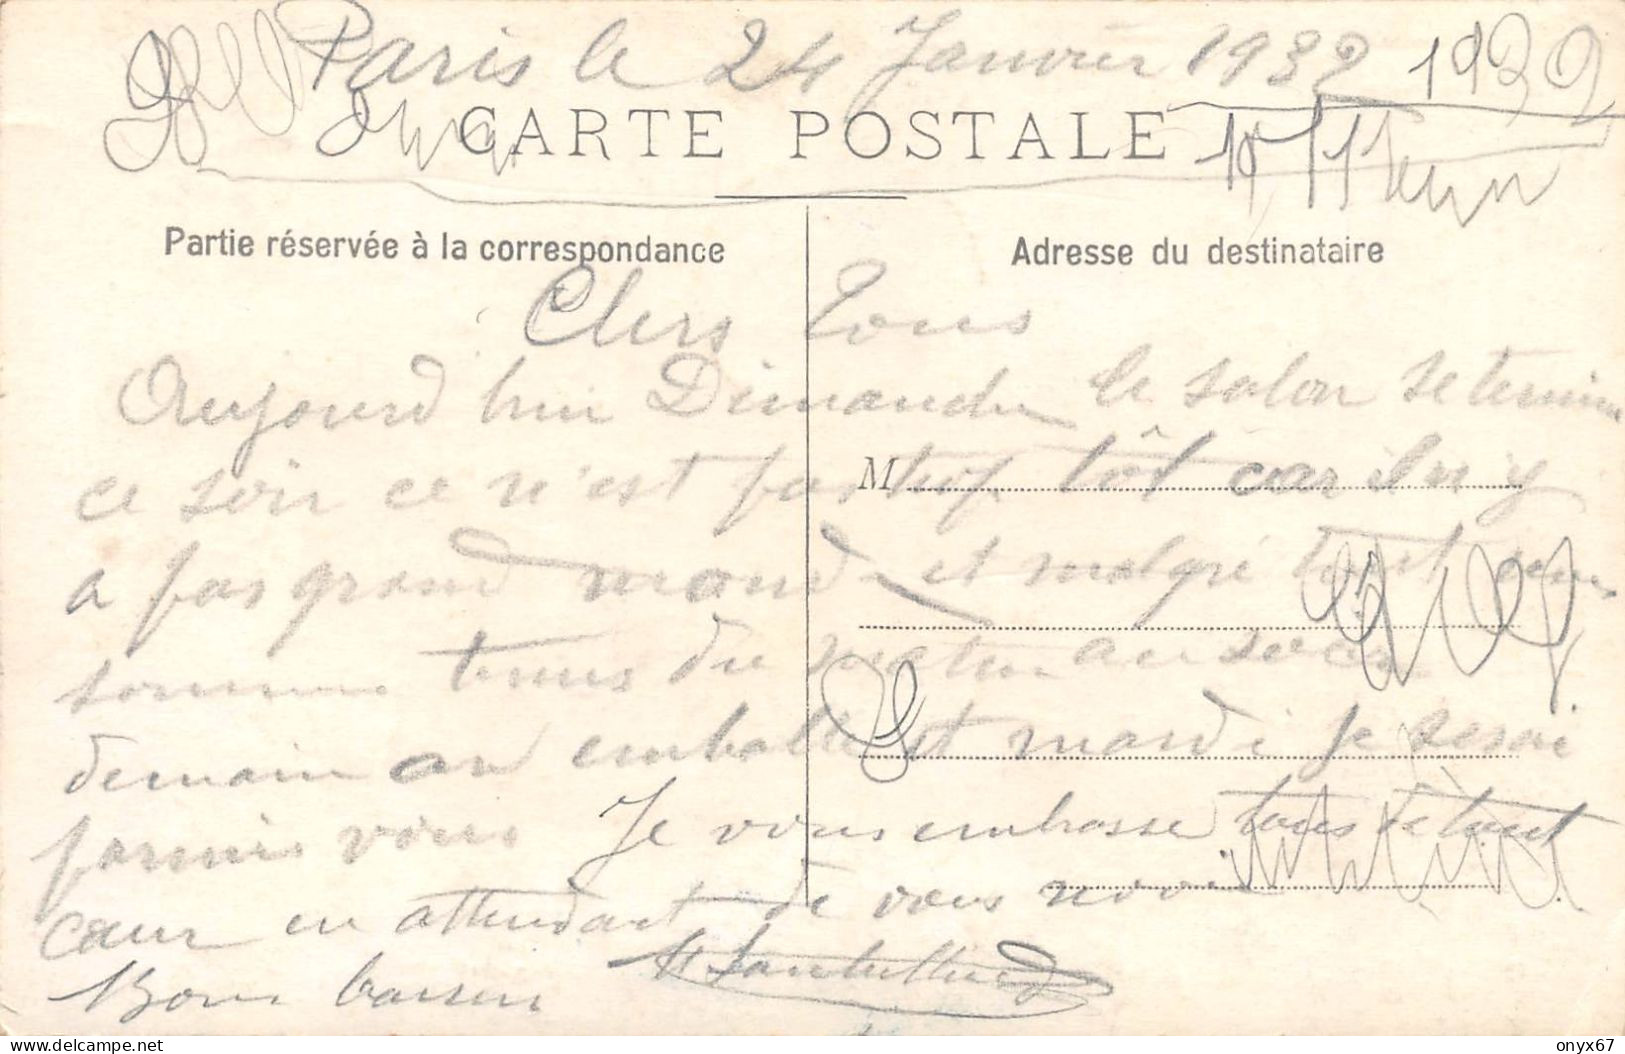 Paris le 24 Janvier 1932 1932
CARTE POSTALE
Partie réservée à la correspondance
Adresse du destinataire
Chers Tous
Aujourd hui Dimanche le salon se termine
ce soir ce n'est pas trop tôt car il n'y
M
a pas grand mond et malgré tout nous
somme tenus du matin au soir
demain on emballe et mardi je serai
parmis vous Je vous embrasse tous de tout
cœur en attendant de vous revoir
Bons baisers
delcampe.net
onyx67